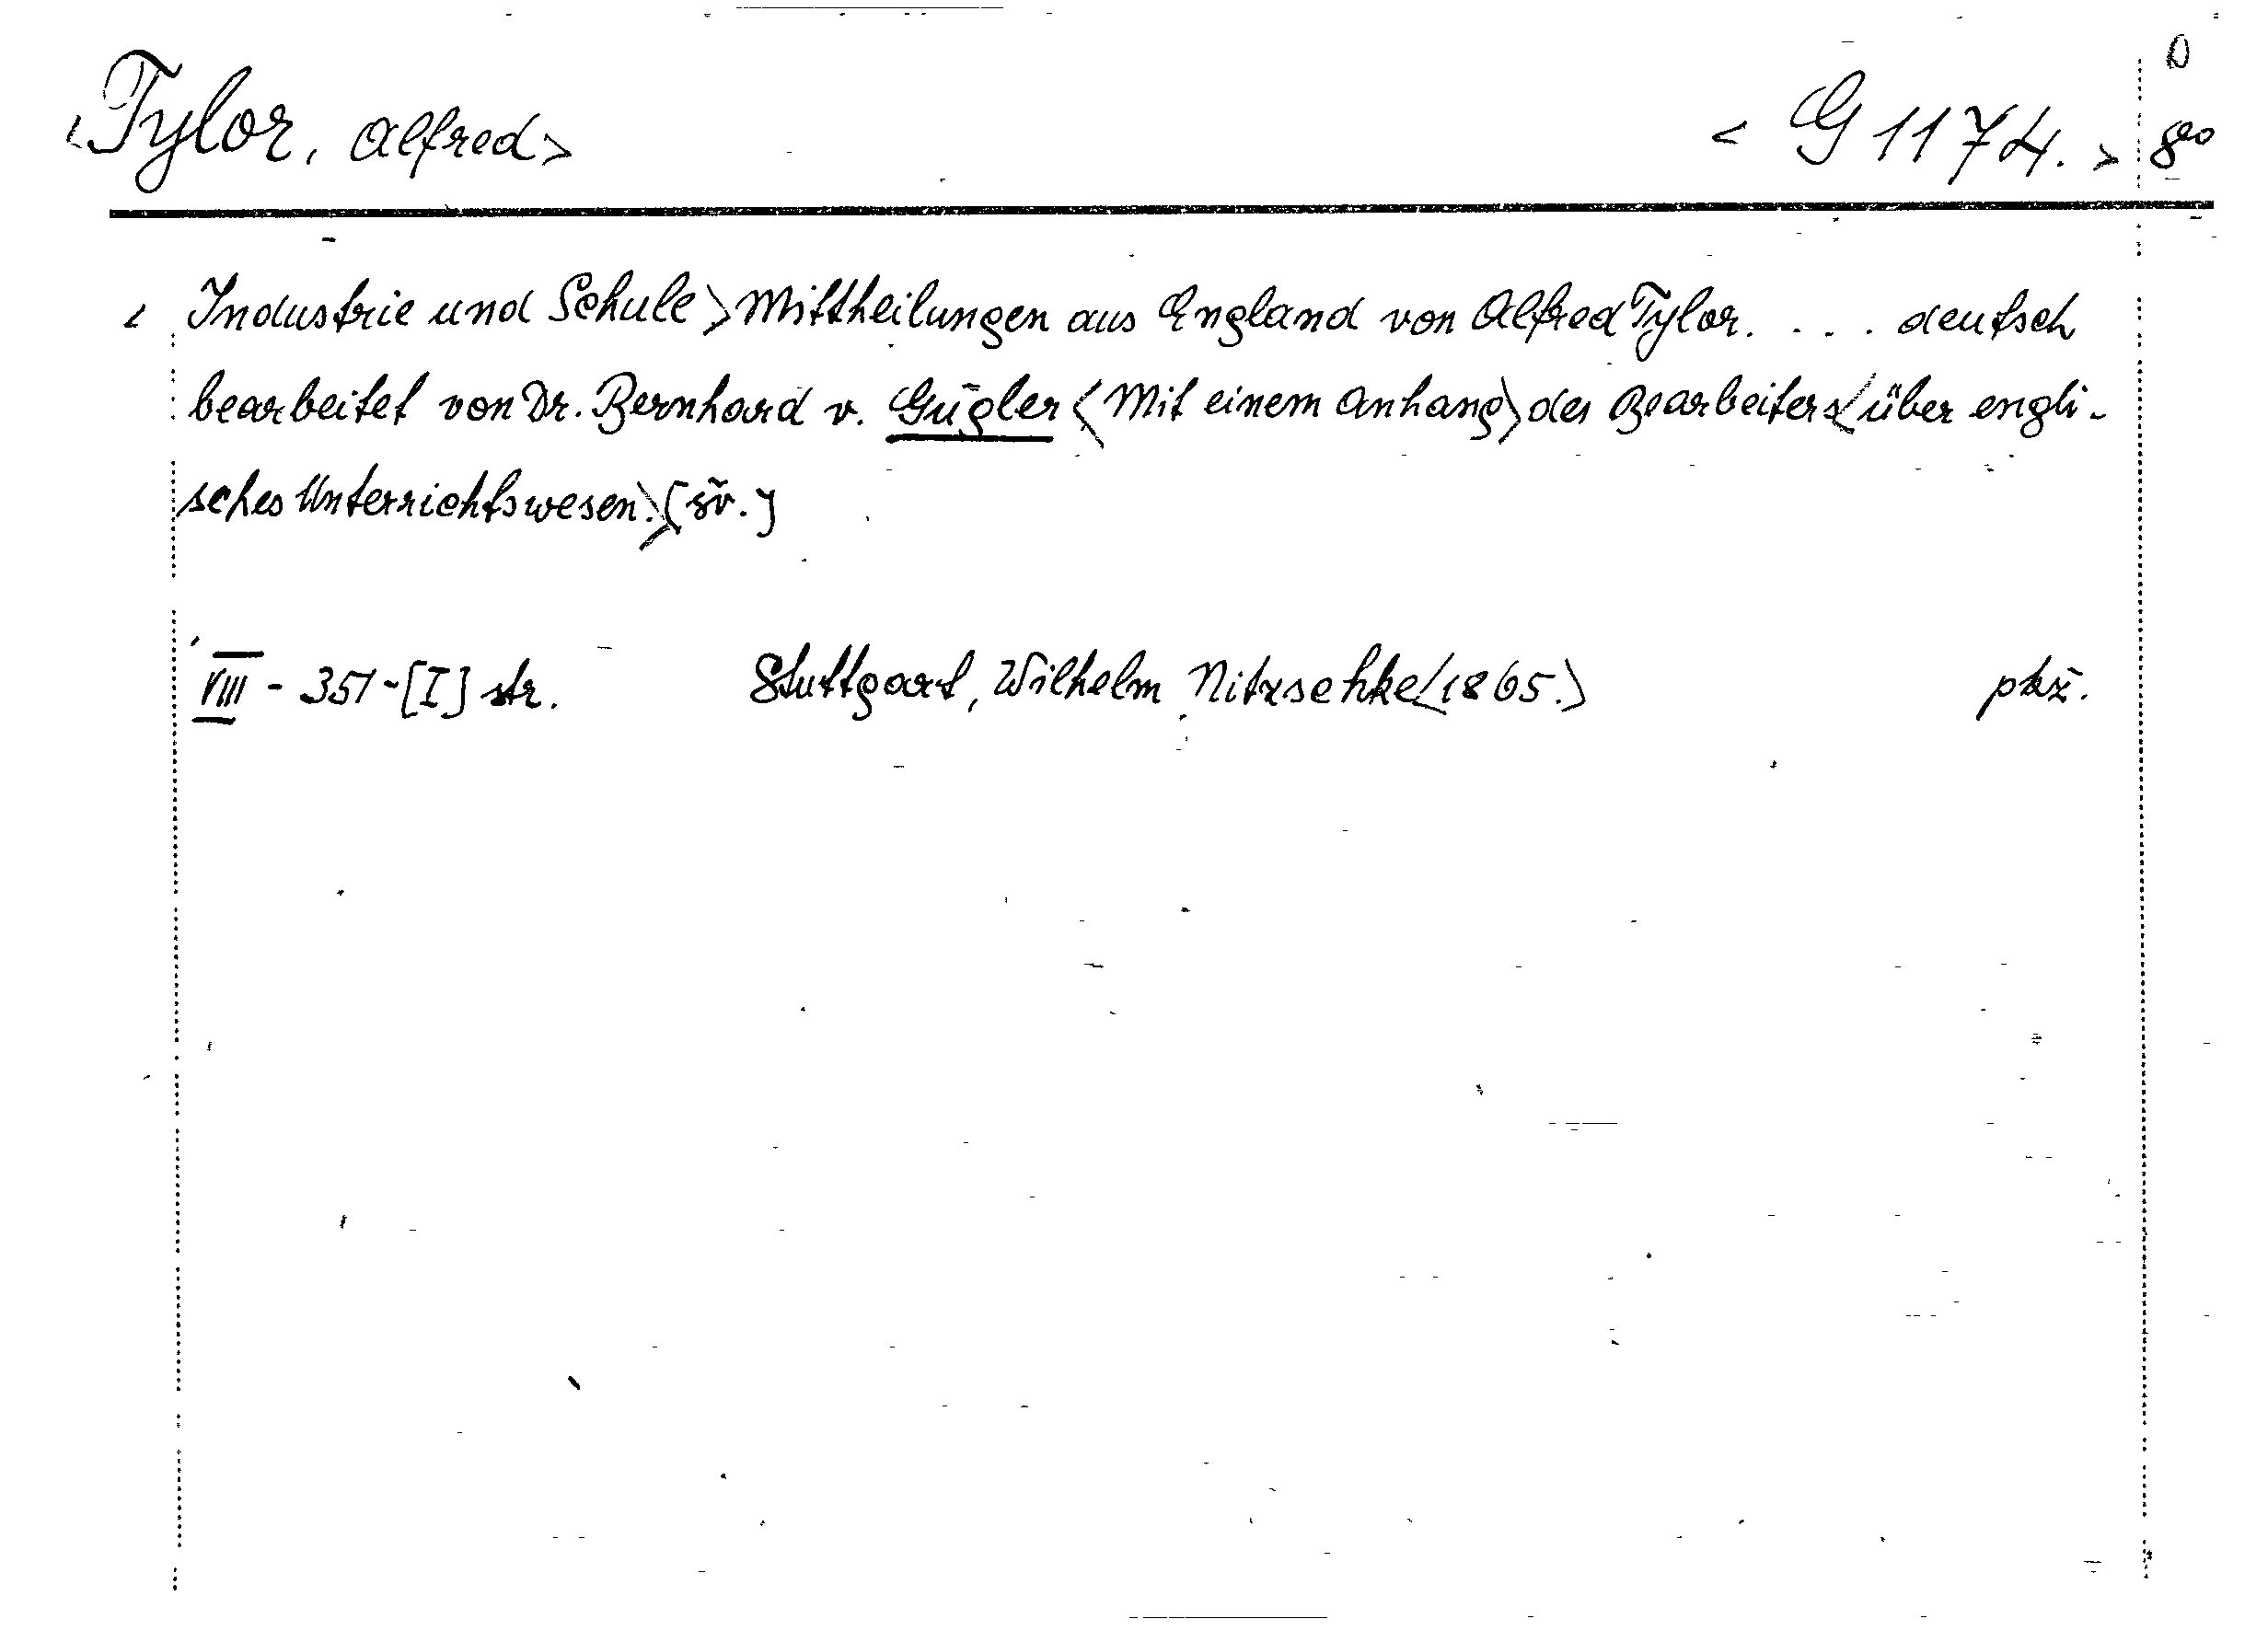 <Tylor, Alfred> < G 1174. > 8⁰
D
< Industrie und Schule > Mittheilungen aus England von Alfred Tylor. . . . deutsch
bearbeitet von Dr. Bernhard v. Gugler < Mit einem Anhang > des Bearbeiters < über engli-
sches Unterrichtswesen. > [sv.]
VIII - 351 - [I] str. Stuttgart, Wilhelm Nitzschke < 1865. > pkž.